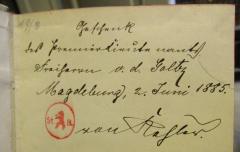 Geschenk
des Premierlieutenants
Freiherrn v. d. Goltz
Magdeburg, 2. Juni 1885.
St B
von Kessler.